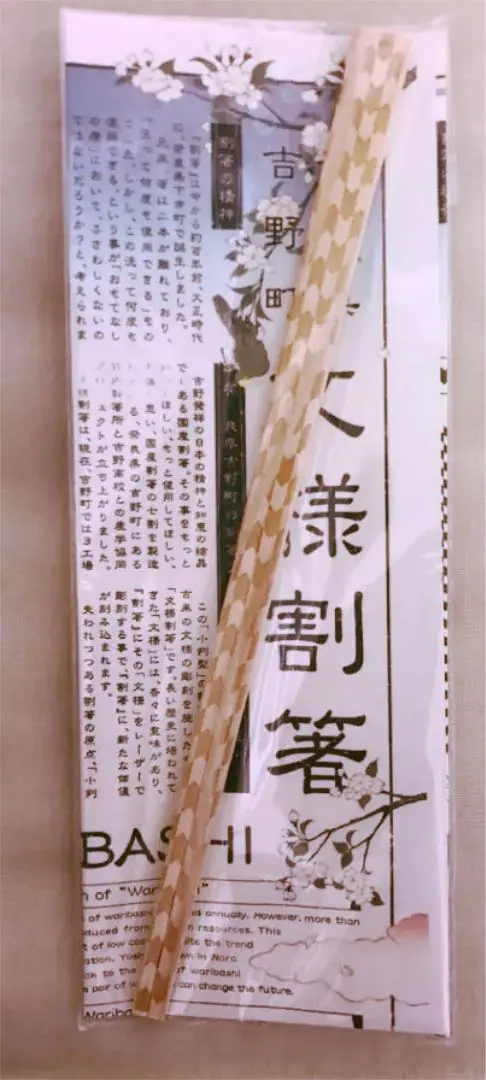 吉野町
文様割箸
割箸の精神
「割箸」は今から約百年前、大正時代
に、奈良県下市町で誕生しました。
元来、箸は二本が離れており、
「洗って何度も使用できる」もの
でした しかし、この洗って何度も
使用できる、という事が「おもてなし
の席」において、ふさわしくないの
ではないだろうか？と、考えられま
奈良吉野町の割箸
吉野発祥の日本の精神と知恵の結晶
である国産割箸。その事をもっと
ほしい、もっと使用してほしい、
思い、国産割箸の七割を製造
る、奈良県の吉野町にある
箸所と吉野高校との産学協同
ェクトが立ち上がりました。
割箸は、現在、吉野町では3工場
この「小判型」の
古来の文様の彫刻を施した
「文様割箸」です。長い歴史に培われて
きた「文様」には、各々に意味があり、
「割箸」にその「文様」をレーザーで
彫刻する事で、「割箸」に、新たな価値
が刻み込まれます。
失われつつある割箸の原点、「小判
BASHI
of "War
of waribas annually. However, more than
duced from resources. This
t of low cos the trend
ation, Yosh n in Nara
ck to the of waribashi
pair of w can change the future.
Wariba